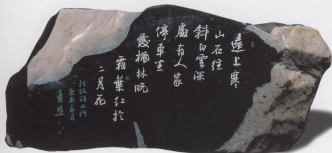 遠上寒
山石徑
斜白雲深
處有人家
停車坐
愛楓林晚
霜葉紅於
二月花
杜牧詩山行